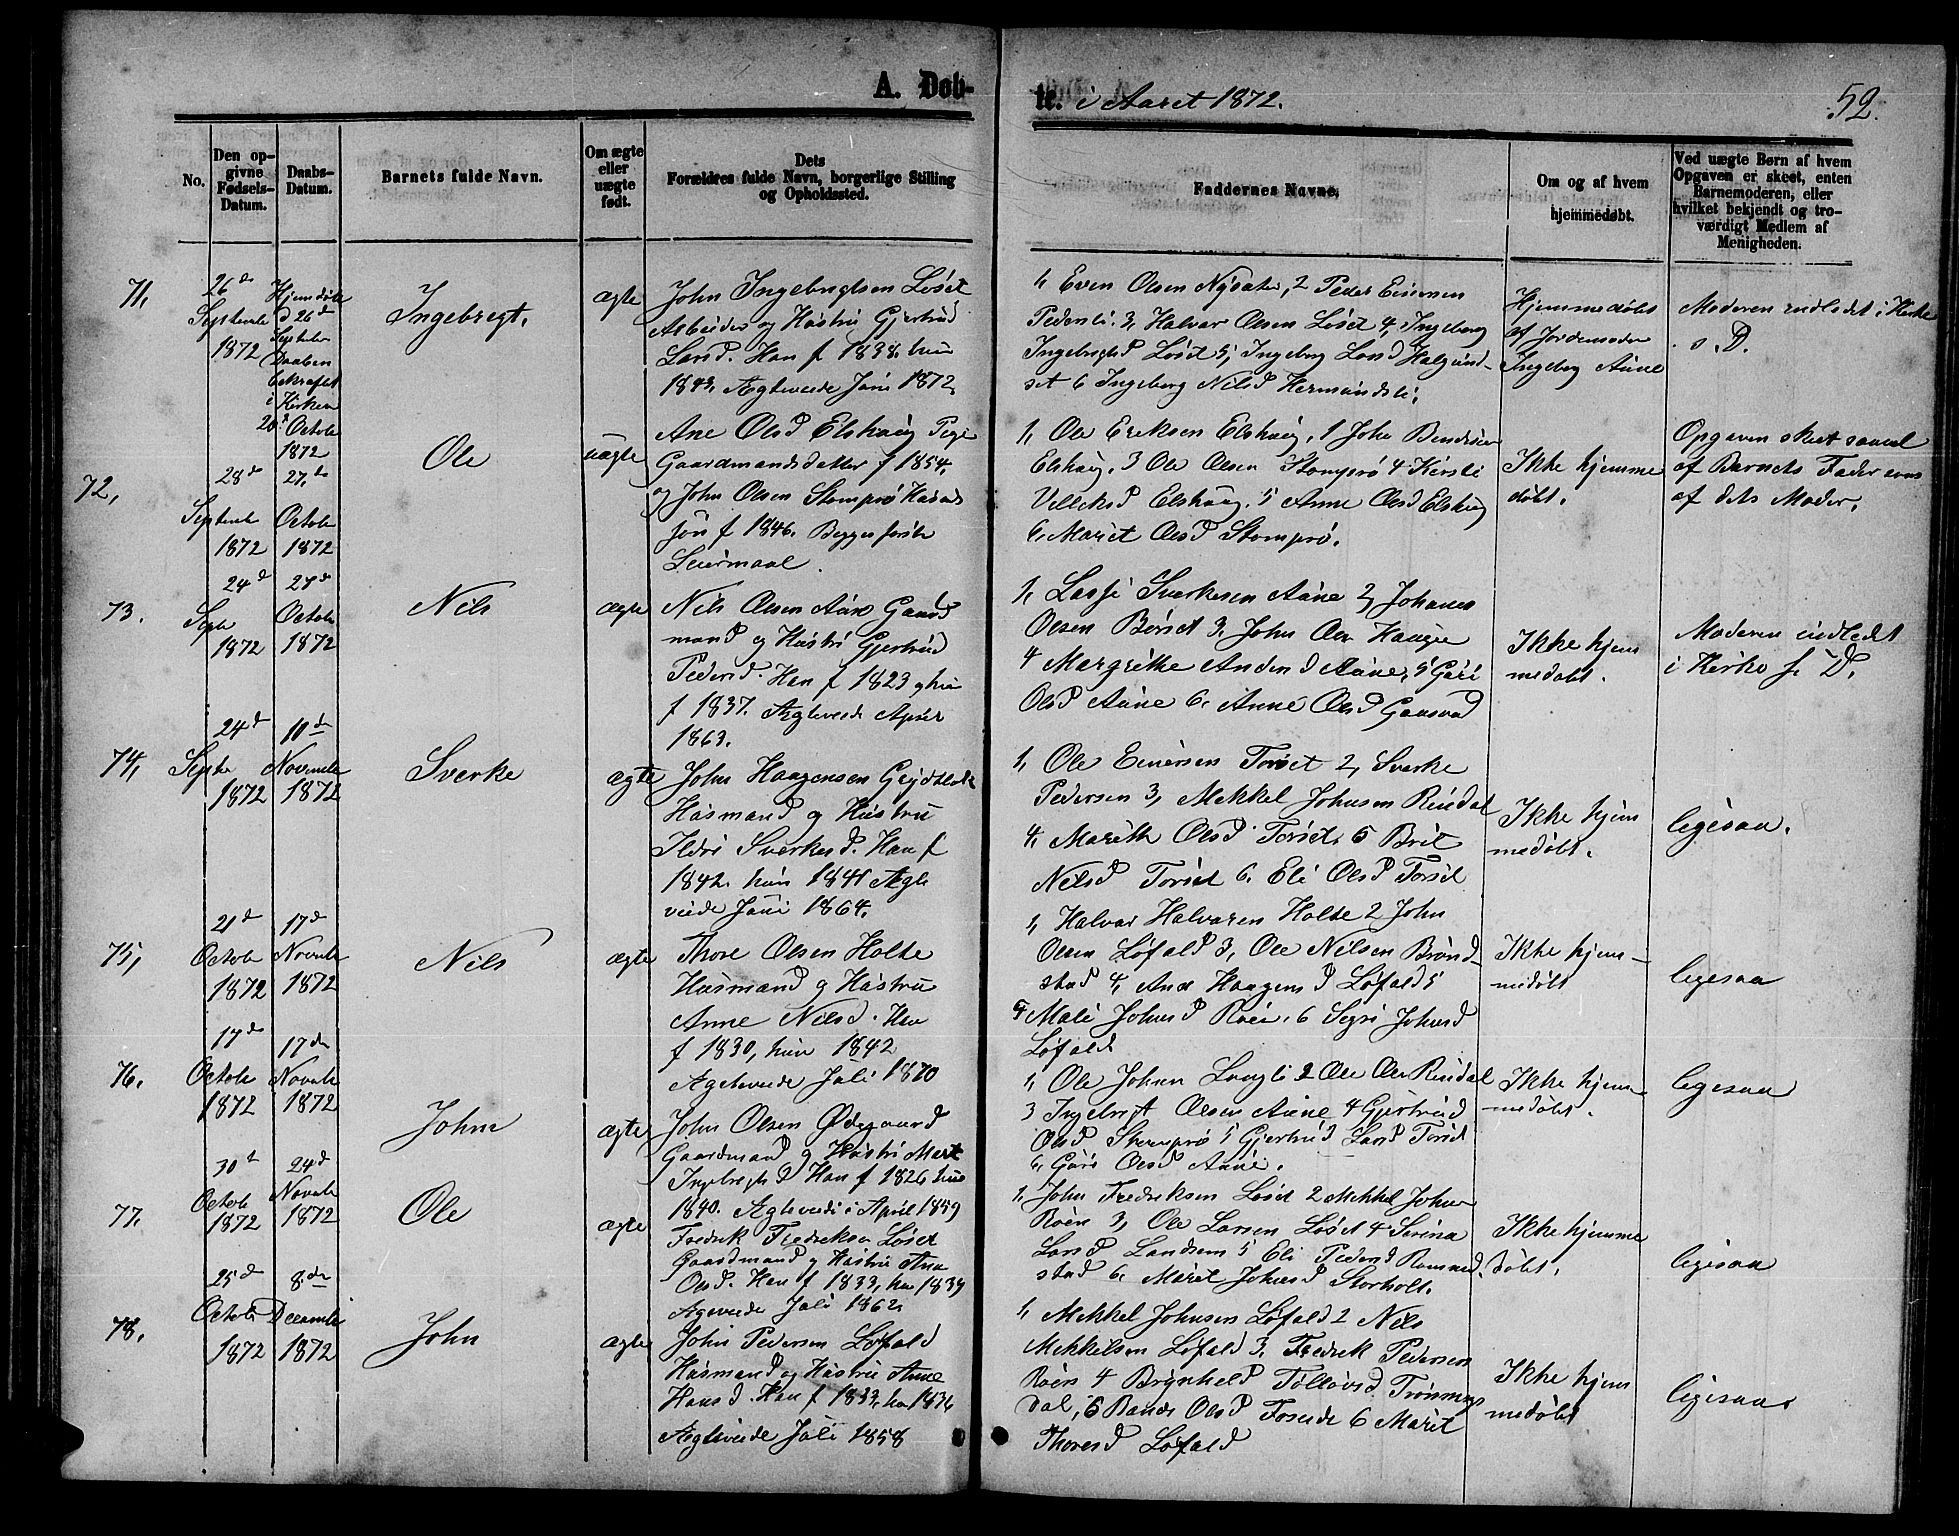 A. Døb-
te. i Aaret 1872.
52.
No.
Den op-
givne
Fødsels-
Datum.
Daabs-
Datum.
Barnets fulde Navn.
Om ægte
eller
uægte
født.
Dets
Forældres fulde Navn, borgerlige Stilling
og Opholdssted.
Faddernes Navne.
Om og af hvem
hjemmedøbt.
Ved uægte Børn af hvem
Opgaven er skeet, enten
Barnemoderen, eller
hvilket bekjendt og tro-
værdigt Medlem af
Menigheden.
71,
26de
Septembe
1872
Hjemdøbt
d 26de
Septebr
Daaben
bekræftet
i
Kirken
20de Octobe
1872
Ingebregt.
ægte
John Ingebregtsen Løset
Arbeider og Hustru Gjertrud
Larsd. Han f 1838, hun
1843, Ægteviede Juni 1872,
1, Even Olsen Nysæter, 2 Peder Einersen
Pedersli. 3, Halvar Olsen Løset 4, Ingeborg
IngebrigtsD Løset 5, Ingeborg LarsD Halgunds-
set 6 Ingeborg NilsD Hermundsli,
Hjemmedøbt
af Jordemoder
Ingeborg Aune
Moderen indledet i Kirke
s. D.
72,
28de
Septembe
1872
27de
Octobe
1872
Ole
uægte
Ane OlsD Elshaug Pige
Gaardmandsdatter f 1854,
og John Olsen Stomprø Husmds
søn f 1846. Begges første
Leiermaal.
1, Ole Eriksen Elshaug, 1 John Bendiksen
Elshaug, 3 Ole Olsen Stomprø 4 Kirsti
Elshaug. 5 Anne OlsD Elshaug
6, Marit OlsD Stomprø.
Ikke hjemme
døbt.
Opgaven skeet saavel
af Barnets Fader som
af dets Moder.
73.
24d
Septbr
1872
27de
Octobe
1872
Nils
ægte
Nils Olsen Aune Gaard
mand og Hustru Gjertrud
Pedersd. Han f 1823 og hun
f 1837. Ægteviede April
1863.
1, Lasse Sverkesen Aune 2, Johanes
Olsen Børset 3, John Olsen Haugen
4 Margrethe AndersD Aune, 5 Guri
OlsD Aune 6. Anne OlsD Gaasvad
Ikke hjem
medøbt.
Moderen indledet
i Kirke s. D.
74,
24de
Septbr
1872
10de
Novembe
1872
Sverke
ægte
John Haagensen
Husmand og Hustru
Ildri Sverkesd. Han f
1842, hun 1841 Ægte
viede Juni 1864.
1, Ole Einersen Torset 2, Sverke
Pedersen 3, Mekkel Johnsen Rindal
4, Marith OlsD Torset, 5 Brit
NilsD Torset 6, Eli OlsD Torset
Ikke hjem
medøbt.
ligesaa.
75,
21de
Octobe
1872
17de
Novembe
1872
Nils
ægte
Thore Olsen Holte
Husmand og Hustru
Anne Nilsd. Han
f 1830, hun 1842
Ægteviede Juli 1870
1, Halvar Halvorsen Holte 2 John
Olsen Løfald 3, Ole Nilsen Brønd-
stad 4, Ane HaagensD Løfald 5
Mali JohnsD Røen, 6 Segri JohnsD
Løfald.
Ikke hjem-
medøbt
ligesaa
76.
17de
Octobe
1872
17de
Novembe
1872
John
ægte
John Olsen Ødegaard
Gaardmand og Hustru Marit
IngebregtsD Han f 1826, hun
1840. Ægteviede i April 1859
1, Ole Johnsen Langli 2 Ole Olsen Rindal
3 Ingebrigt Olsen Aune 4 Gjertrud
OlsD Stomprø 5 Gjertrud LarsD Torset
6, Guri OlsD Aune.
Ikke hjem
medøbt.
ligesaa
77.
30te
Octobe
1872
24de
Novembe
1872
Ole
ægte
Fredrik Fredriksen Løset
Gaardmand og Hustru Ane
OlsD. Han f 1833, hun 1839
Ægteviede Juli 1862.
1, John Fredriksen Løset 2 Mekkel Johnsen
Røen 3, Ole Larsen Løset 4 Serina
LarsD Landsem 5 Eli PedersD Rommed-
stad 6, Marit JohnsD Storholt.
Ikke hjemme
døbt.
ligesaa
78,
25de
Octobe
1872
8de
Decembe
1872
John
ægte
John Pedersen Løfald
Husmand og Hustru Anne
HansD. Han f 1833, hun 1836
Ægteviede Juli 1858
1, Mekkel Johnsen Løfald 2 Nils
Mekkelsen Løfald 3, Fredrik Pedersen
Røen 4 Brynhild Tøllovsd Trønnings
dal, 5 OlsD Foseide 6 Marit
ThoresD Løfald
Ikke hjem
medøbt
ligesaa.